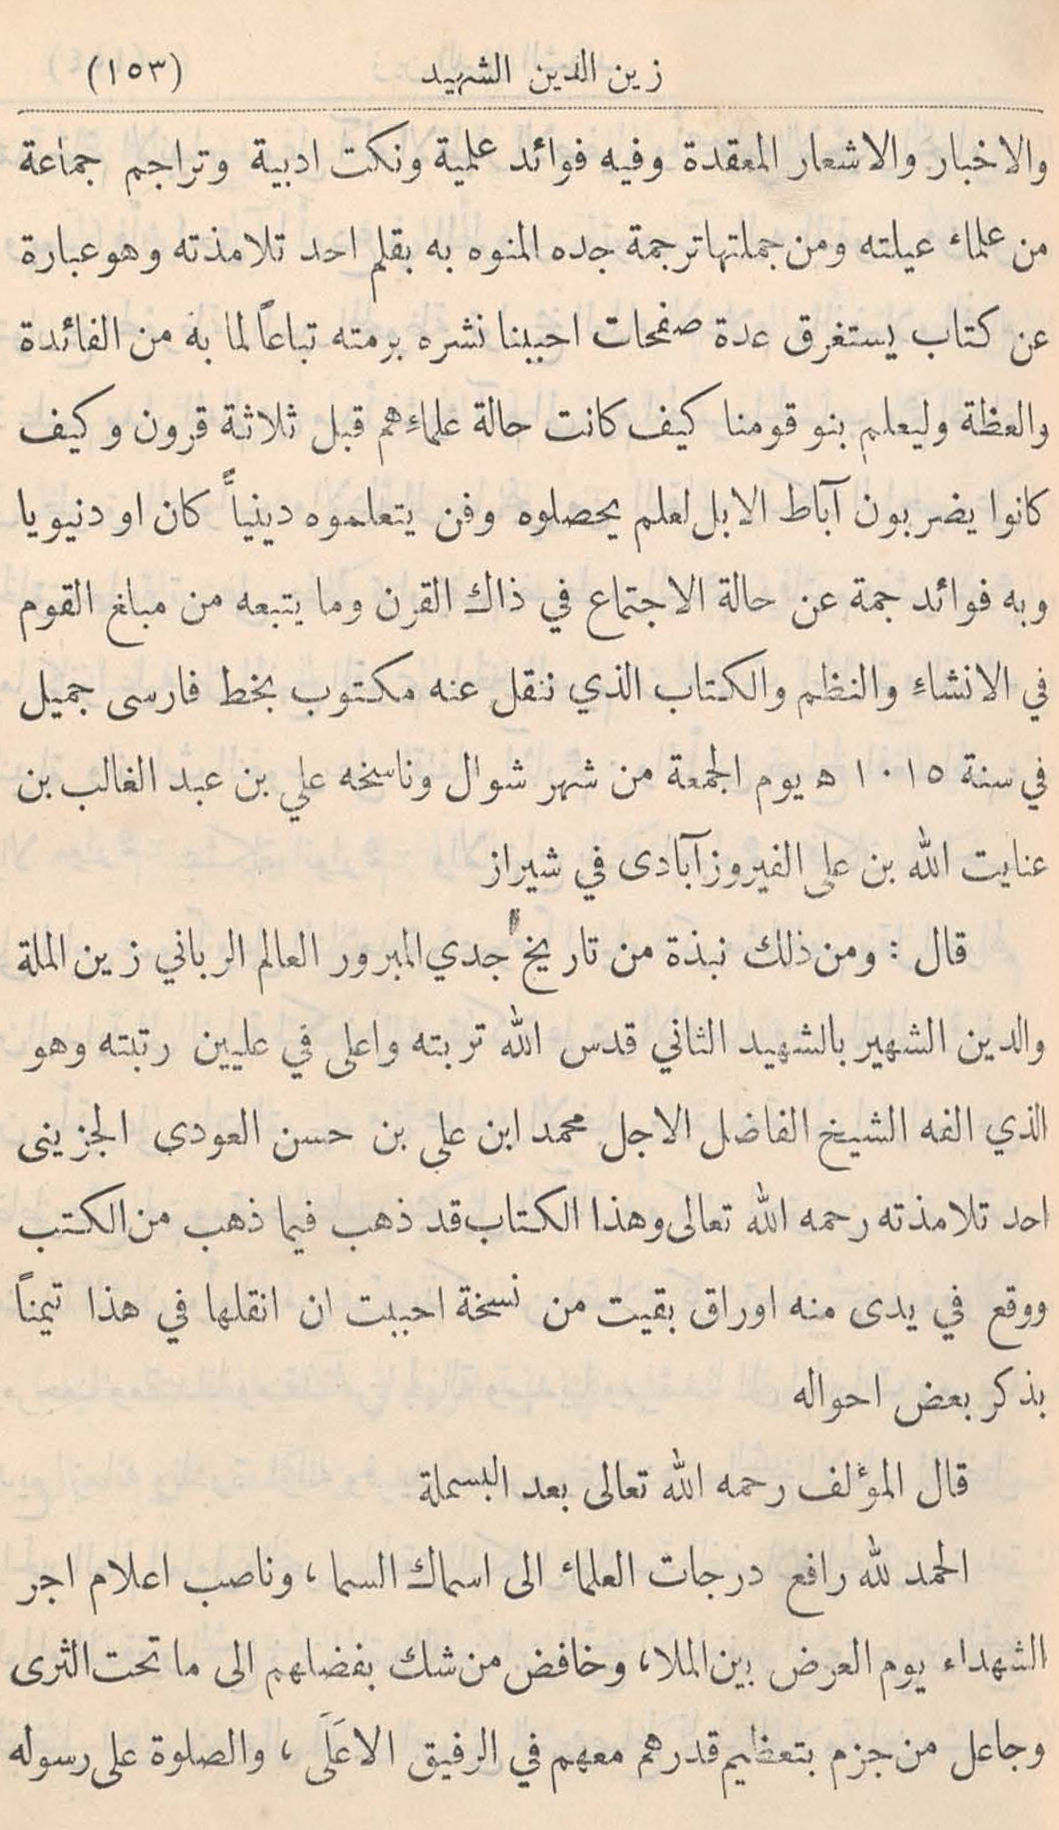 زين الدين الشهيد (١٥٣)
والاخبار والاشعار المعقدة وفيه فوائد علمية ونكت ادبية وتراجم جماعة
من علماء عيلته ومن جملتها ترجمة جده المنوه به بقلم احد تلامذته وهو عبارة
عن كتاب يستغرق عدة صفحات احببنا نشره برمته تباعاً لما به من الفائدة
والعظة وليعلم بنو قومنا كيف كانت حالة علماءِهم قبل ثلاثة قرون وكيف
كانوا يضربون آباط الابل لعلم يحصلوه وفن يتعلموه دينياً كان او دنيويا
وبه فوائد جمة عن حالة الاجتماع في ذاك القرن وما يتبعه من مبلغ القوم
في الانشاءِ والنظم والكتاب الذي ننقل عنه مكتوب بخط فارسى جميل
في سنة ١٠١٥ ه يوم الجمعة من شهر شوال وناسخه علي بن عبد الغالب بن
عنايت الله بن على الفيروزآبادى في شيراز
قال : ومن ذلك نبذة من تاريخ جدي المبرور العالم الرباني زين الملة
والدين الشهير بالشهيد الثاني قدس الله تربته واعلى في عليين رتبته وهو
الذي الفه الشيخ الفاضل الاجل محمد ابن علي بن حسن العودى الجزينى
احد تلامذته رحمه الله تعالى وهذا الكتاب قد ذهب فيما ذهب من الكتب
ووقع في يدى منه اوراق بقيت من نسخة احببت ان انقلها في هذا تيمناً
بذكر بعض احواله
قال المؤلف رحمه الله تعالى بعد البسملة
الحمد لله رافع درجات العلماء الى اسماك السما ، وناصب اعلام اجر
الشهداء يوم العرض بين الملا، وخافض من شك بفضلهم الى ما تحت الثرى
وجاعل من جزم بتعظيم قدرهم معهم في الرفيق الاعَلَى ، والصلوة على رسوله